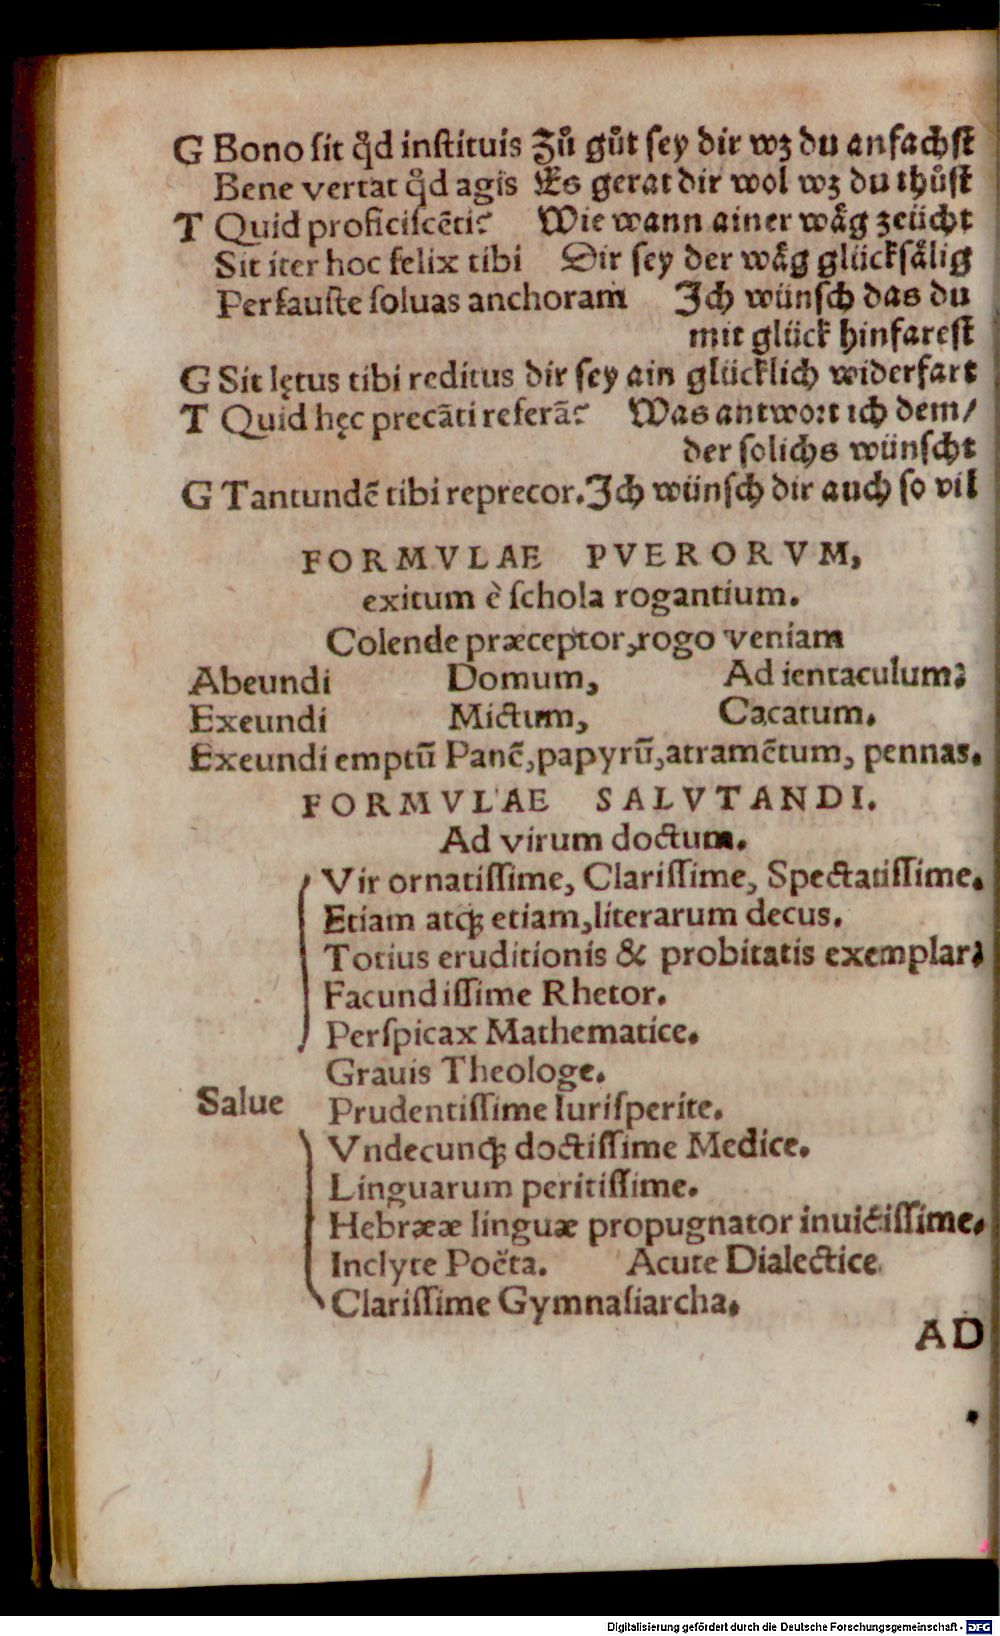 G Bono ſit qd̊ inſtituis Zů gůt ſey dir wz du anfachſt
Bene vertat qd̊ agis Es gerat dir wol wz du thůſt
T Quid proficiſcẽti? Wie wann ainer wåg zeücht
Sit iter hoc felix tibi Dir ſey der wåg glückſålig
Perfauſte ſoluas anchoram Jch wünſch das du
mit glück hinfareſt
G Sit lętus tibi reditus dir ſey ain glücklich widerfart
T Quid hęc precãti referã? Was antwoꝛt ich dem/
der ſolichs wünſcht
G Tantundẽ tibi reprecor. Jch wünſch dir auch ſo vil
FORMVLAE PVERORVM,
exitum è ſchola rogantium.
Colende præceptor, rogo veniam
Abeundi Domum, Ad ientaculum,
Exeundi Mictum, Cacatum.
Exeundi emptũ Panẽ, papyrũ, atramẽtum, pennas.
FORMVLAE SALVTANDI.
Ad virum doctum.
Vir ornatiſſime, Clariſſime, Spectatiſſime.
Etiam atqꝫ etiam, literarum decus.
Totius eruditionis & probitatis exemplar,
Facundiſſime Rhetor.
Perſpicax Mathematice.
Grauis Theologe.
Salue Prudentiſſime Iuriſperite.
Vndecunqꝫ doctiſſime Medice.
Linguarum peritiſſime.
Hebrææ linguæ propugnator inuictiſſime.
Inclyte Poëta. Acute Dialectice.
Clariſſime Gymnaſiarcha.
AD
Digitalisierung gefördert durch die Deutsche Forschungsgemeinschaft - DFG